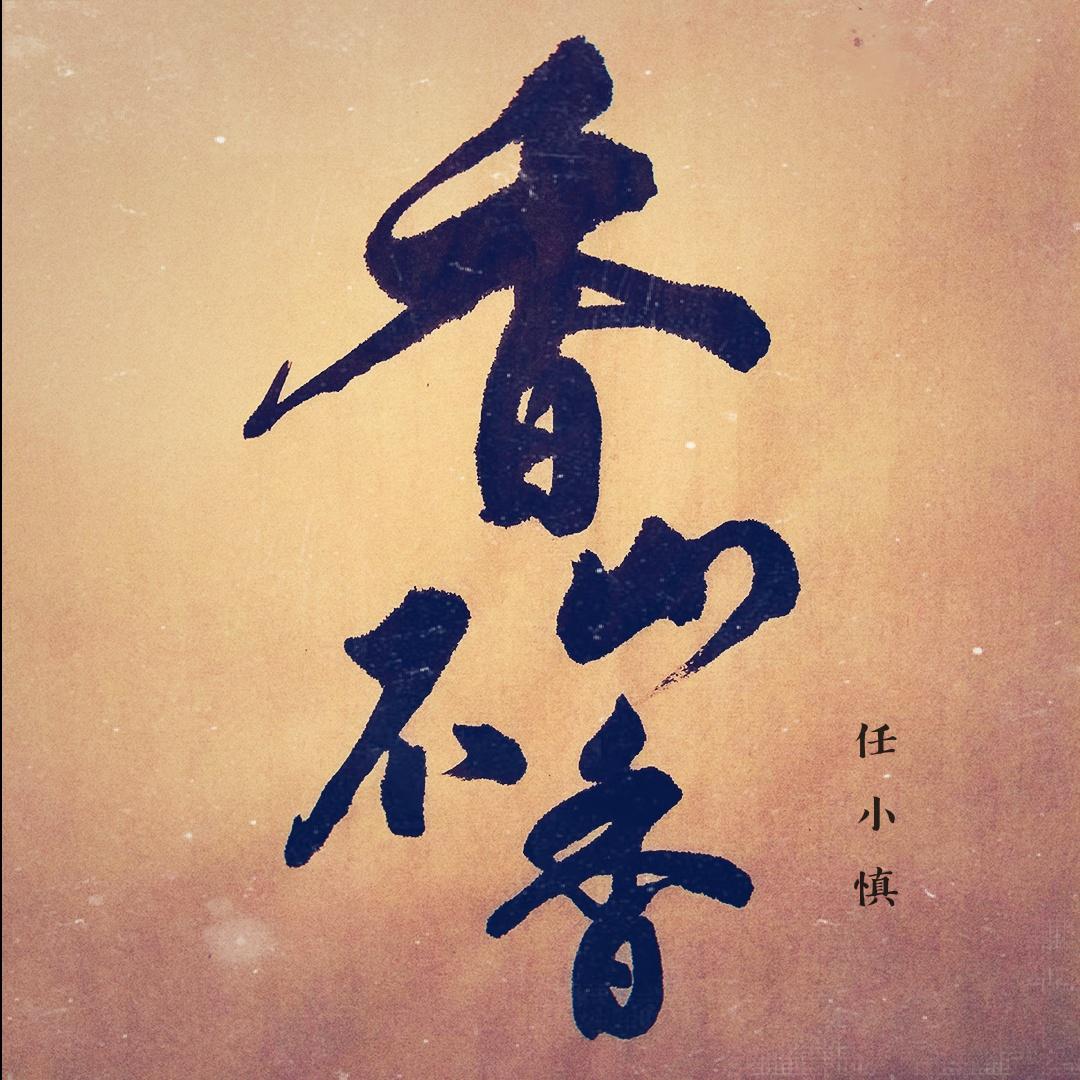 香山不香
任小慎